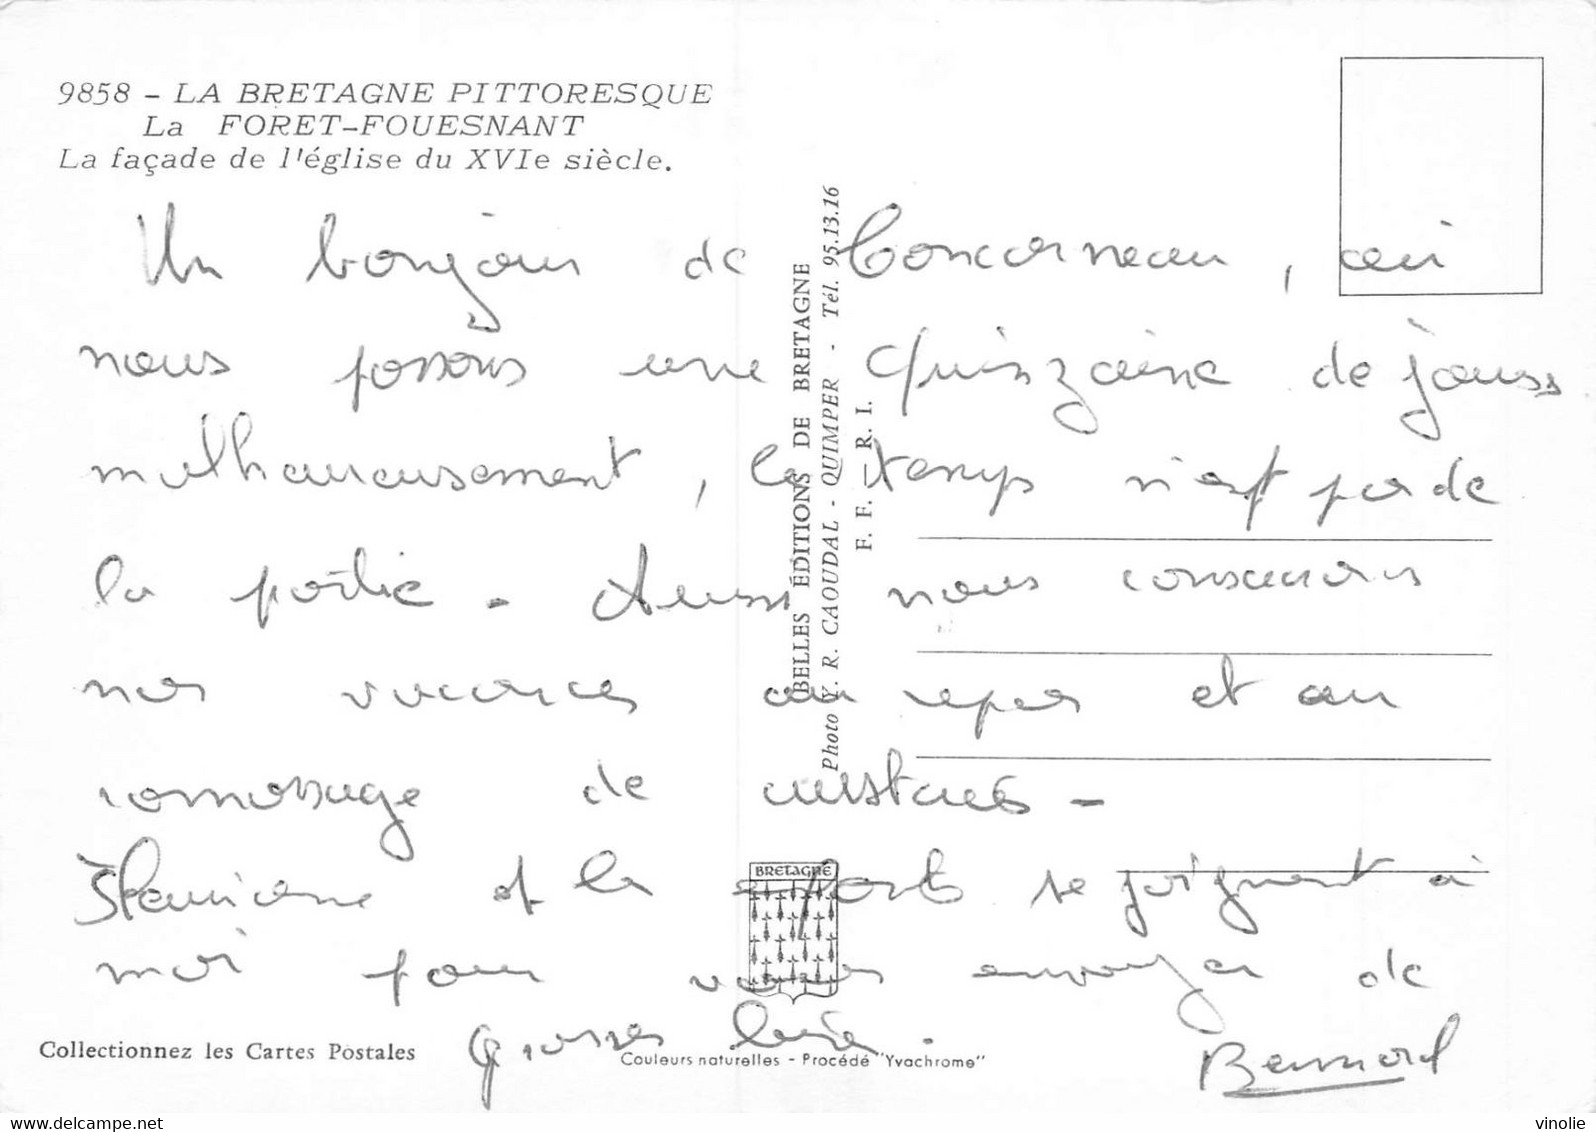 9858 - LA BRETAGNE PITTORESQUE
La FORET-FOUESNANT
La façade de l'église du XVIe siècle.
Un bonjour de Concarneau, où
nous passons une quinzaine de jours
malheureusement, le temps n'est pas de
la partie - Aussi nous consacrons
nos vacances au repos et au
ramassage de crustacés -
et les enfants se joignent à
moi pour vous envoyer de
grosses bises.
Bernard
BELLES ÉDITIONS DE BRETAGNE
Photo Y. R. CAOUDAL - QUIMPER - Tél. 95.13.16
F. F. R. I.
BRETAGNE
Collectionnez les Cartes Postales
Couleurs naturelles - Procédé "Yvachrome"
www.delcampe.net
vinolie